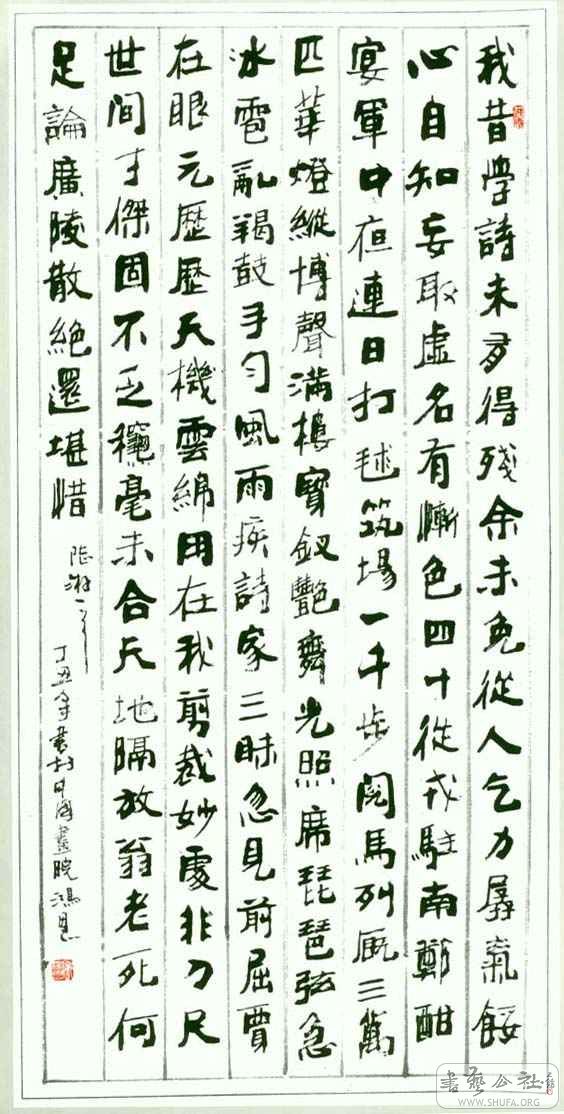 我昔学詩未有得残余未免從人乞力孱氣餒
心自知妄取虛名有慚色四十從戎駐南鄭酣
宴軍中夜連日打毬筑場一千步閱馬列厩三萬
匹華燈縱博聲滿樓寶釵艷舞光照席琵琶弦急
冰雹亂羯鼓手勻風雨疾詩家三昧忽見前屈賈
在眼元歷歷天機雲綿用在我剪裁妙處非刀尺
世間才傑固不乏龝毫未合天地隔放翁老死何
足論廣陵散絕還堪惜
陸游
丁丑年書於中國畫院
書藝公社
WWW.SHUFA.ORG